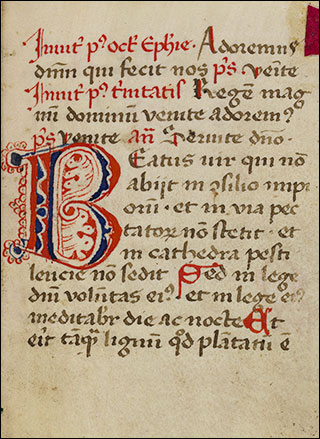 Inuit' p⁹ oct̄ Ephie · Adoremus
dn̄m qui fecit nos p̄s venite
Inuit' p⁹ t'nitatis Regem mag
nū dominum venite adorem⁹
p̄s venite an̄ Seruite dn̄o ·
Beatus uir qui nō
abijt in ɔsilio impi
orū · et in via pec
catorȩ nō stetit · et
in cathedra pesti
lencie nō sedit Sed in lege
dn̄i volūtas ei⁹ et in lege ei⁹
meditabr̄ die ac nocte Et
erit tāq̄ lignum qd̄ plātatū ē